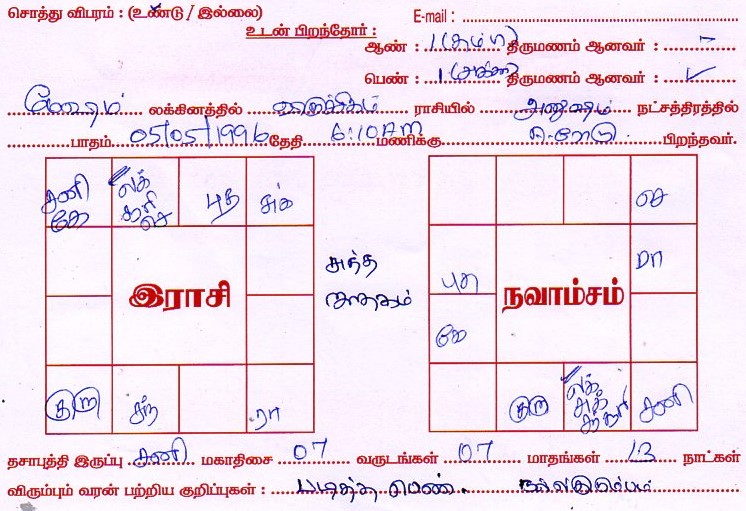 சொத்து விபரம் : (உண்டு / இல்லை)
E-mail :
உடன் பிறந்தோர் :
ஆண் : 1 (தம்பி) திருமணம் ஆனவர் : –
பெண் : 1 (அக்கா) திருமணம் ஆனவர் : ✓
மேஷம் லக்கினத்தில் விருச்சிகம் ராசியில் அனுஷம் நட்சத்திரத்தில்
பாதம் 05/05/1996 தேதி 6:10AM மணிக்கு ஈரோடு பிறந்தவர்.
சனி கே
லக் சூரி செ
புத
சுக்
இராசி
குரு
சந்
ரா
சுத்த ஜாதகம்
செ
மா
புத
கே
நவாம்சம்
குரு
லக் சுக் சூரி
சனி
தசாபுத்தி இருப்பு சனி மகாதிசை 07 வருடங்கள் 07 மாதங்கள் 13 நாட்கள்
விரும்பும் வரன் பற்றிய குறிப்புகள் : படித்த பெண். நல்ல குடும்பம்